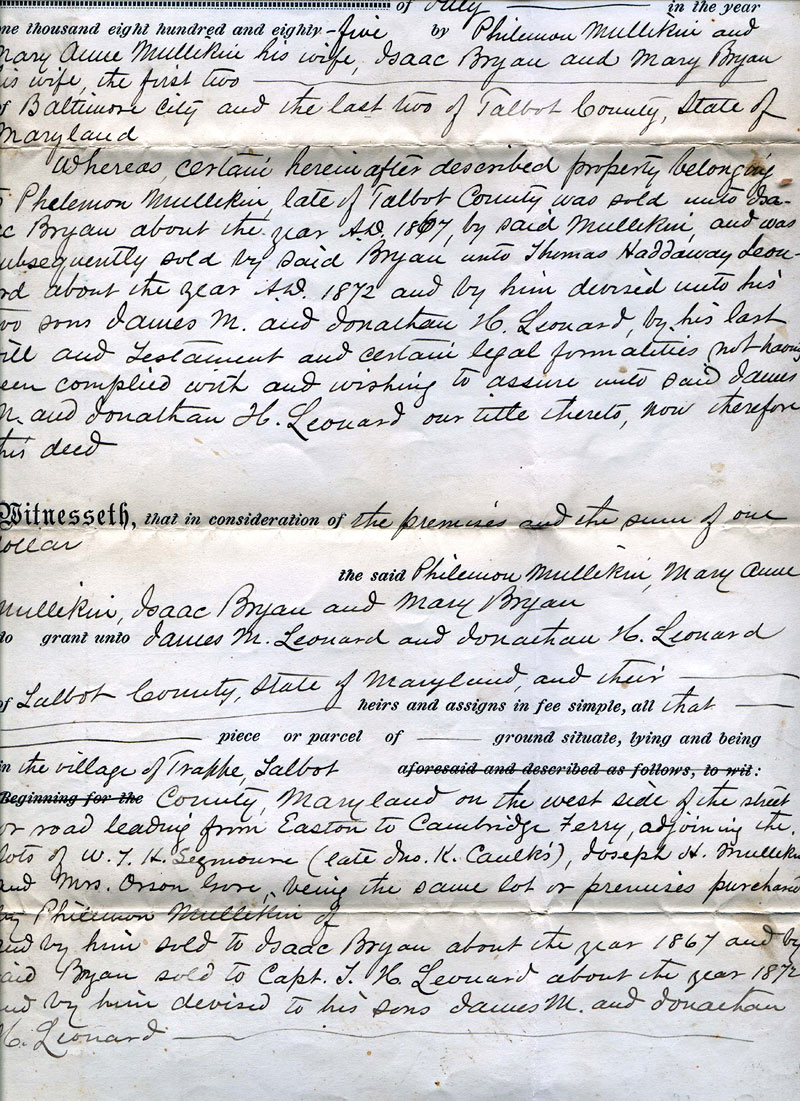 of July in the year
one thousand eight hundred and eighty-five by Philemon Mullikin and
Mary Anne Mullikin his wife, Isaac Bryan and Mary Bryan
his wife, the first two
of Baltimore City and the last two of Talbot County, State of
Maryland
Whereas, certain herein after described property belonging
to Phelemon Mullikin, late of Talbot County was sold unto Isa-
ac Bryan about the year A.D. 1867, by said Mullikin, and was
subsequently sold by said Bryan unto Thomas Haddaway Leon-
ard about the year A.D. 1872 and by him devised unto his
two sons James M. and Jonathan H. Leonard, by his last
will and Testament and certain legal formalities not having
been complied with and wishing to assure unto said James
M. and Jonathan H. Leonard our title thereto, now therefore
this deed
Witnesseth, that in consideration of the premises and the sum of one
dollar
the said Philemon Mullikin, Mary Anne
Mullikin, Isaac Bryan and Mary Bryan
do grant unto James M. Leonard and Jonathan H. Leonard
of Talbot County, State of Maryland, and their
heirs and assigns in fee simple, all that
piece or parcel of ground situate, lying and being
in the village of Trappe, Talbot aforesaid and described as follows, to wit:
Beginning for the County, Maryland on the west side of the street
or road leading from Easton to Cambridge Ferry, adjoining the
lots of W. T. H. Seymoure (late Jno. K. Caulk's), Joseph H. Mullikin
and Mrs. Orson Gore, being the same lot or premises purchased
by Philemon Mullikin of
and by him sold to Isaac Bryan about the year 1867 and by
said Bryan sold to Capt. T. H. Leonard about the year 1872
and by him devised to his sons James M. and Jonathan
H. Leonard